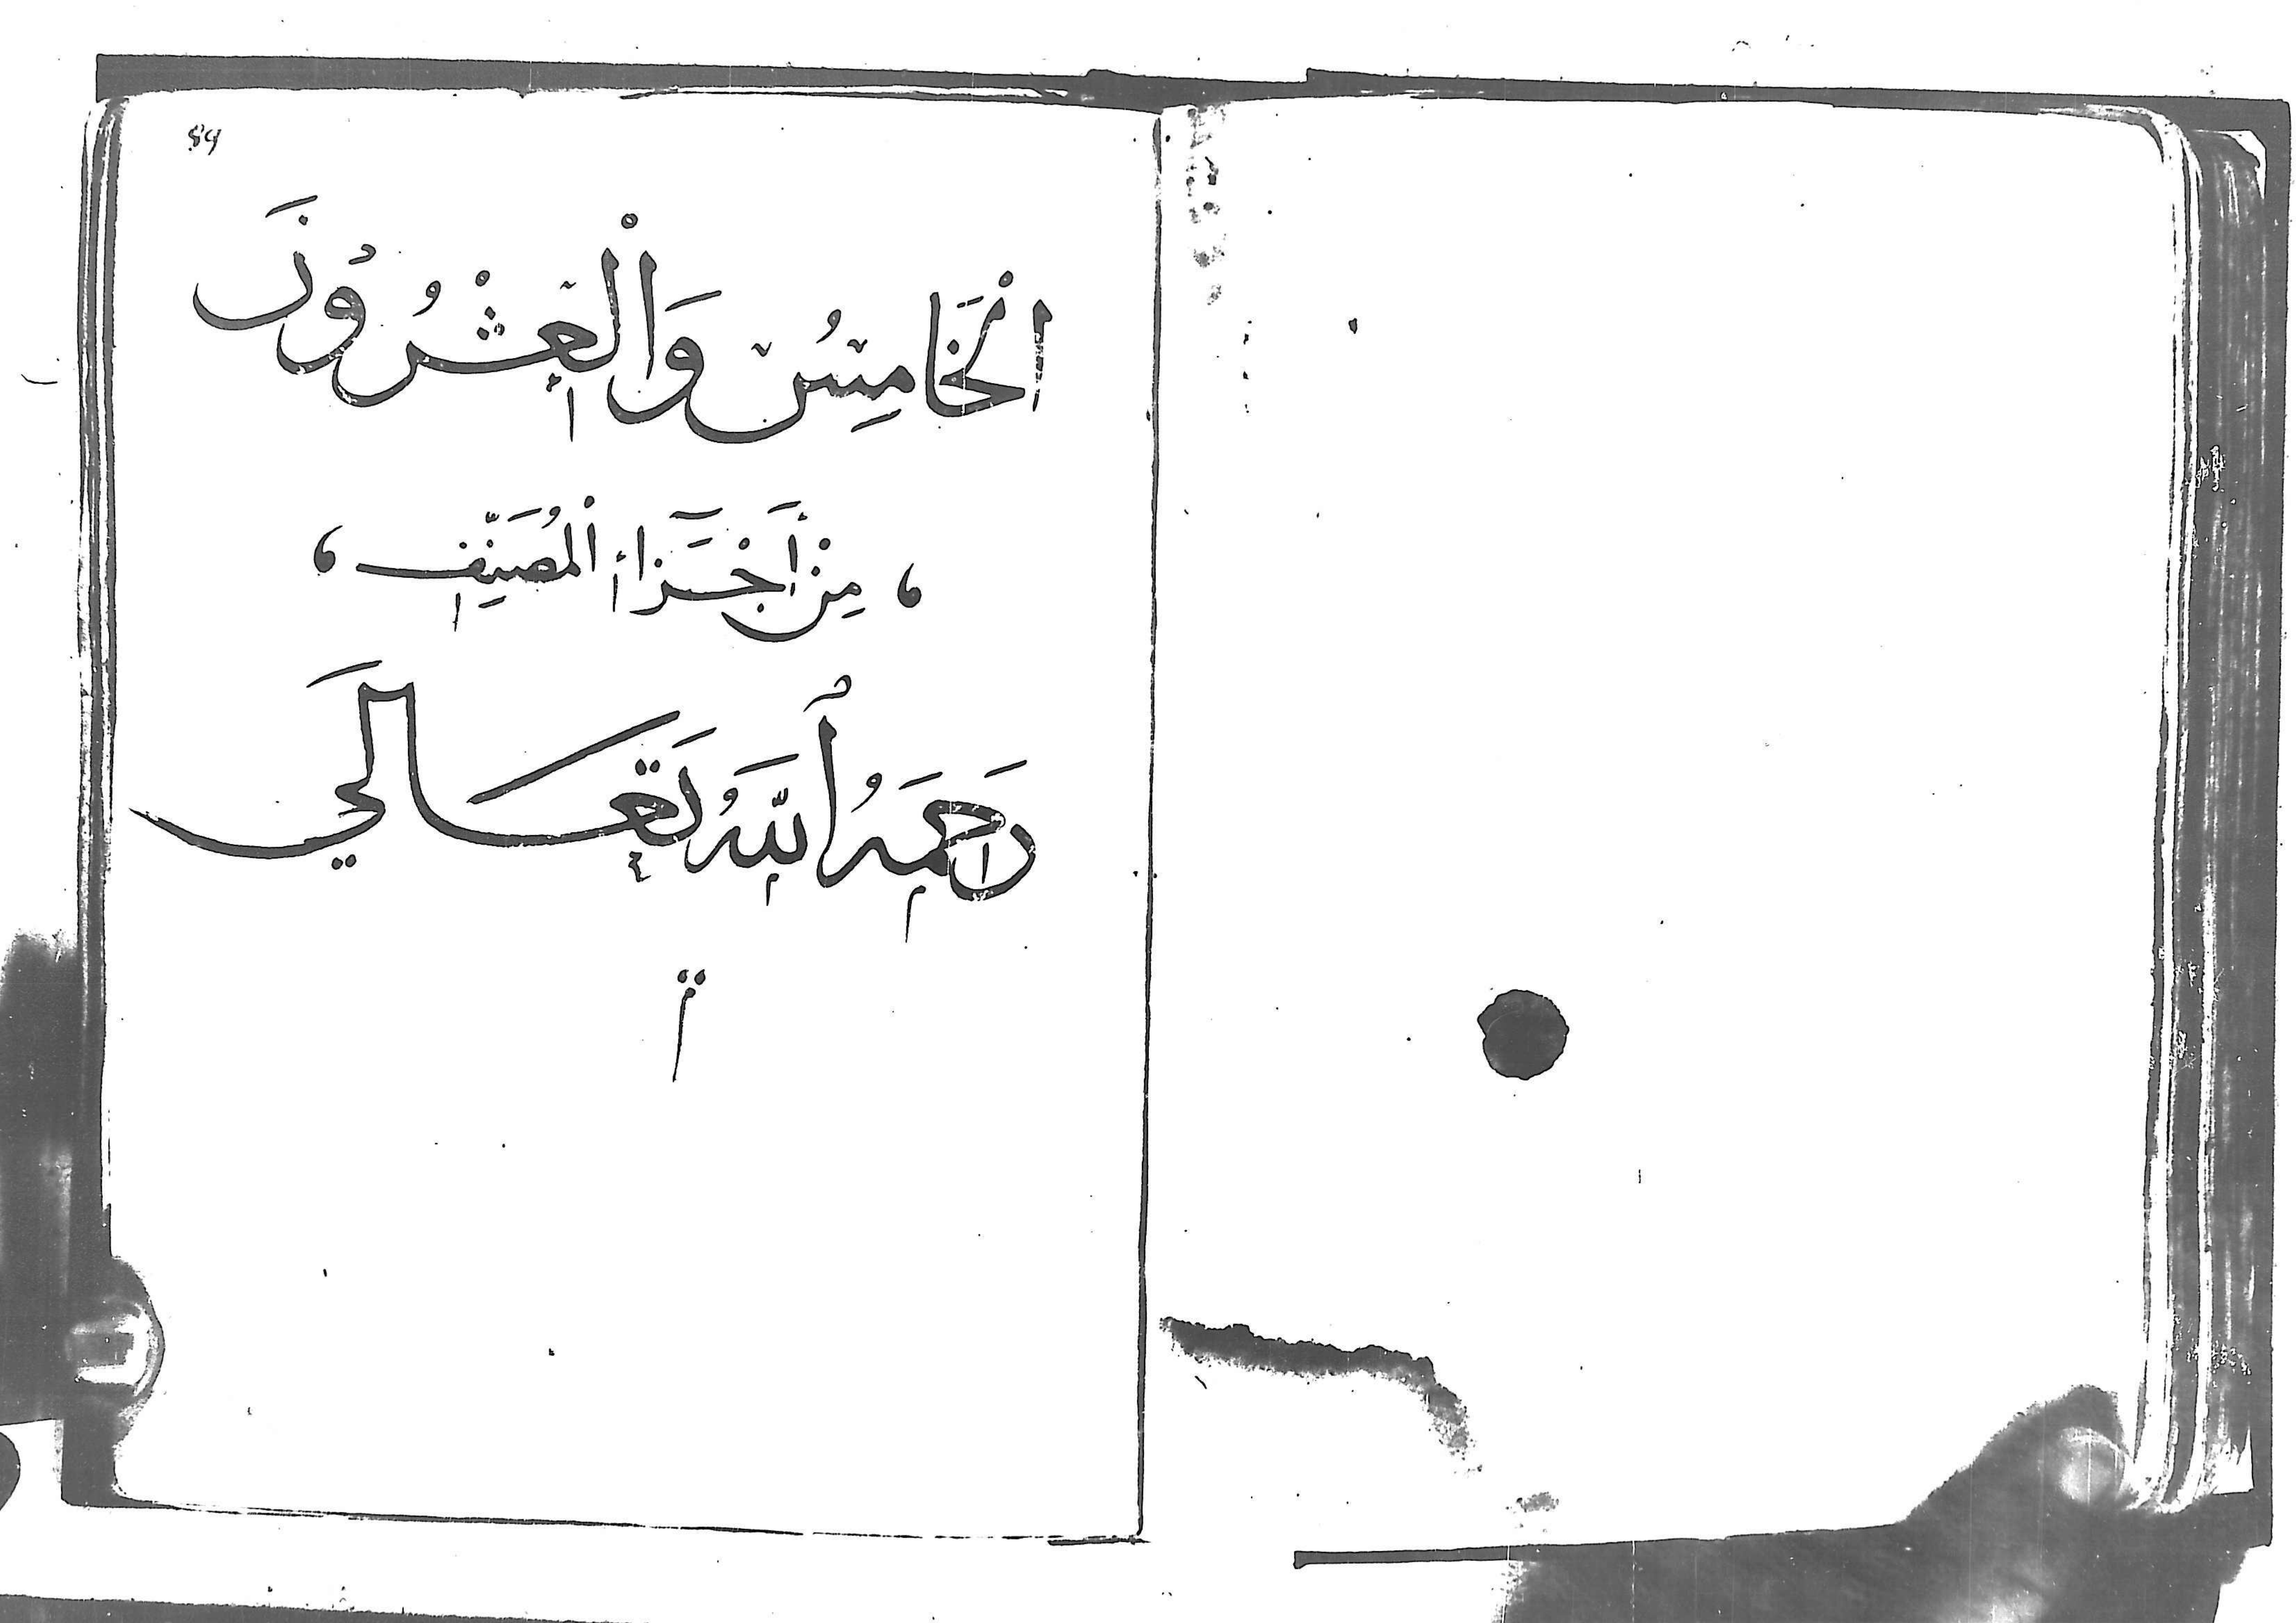 89
الْخَامِسُ وَالْعِشْرُوْنَ
، مِنْ أَجْزَآءِ الْمُصَنِّفِ ،
رَحِمَهُ اللّٰهُ تَعَالَي